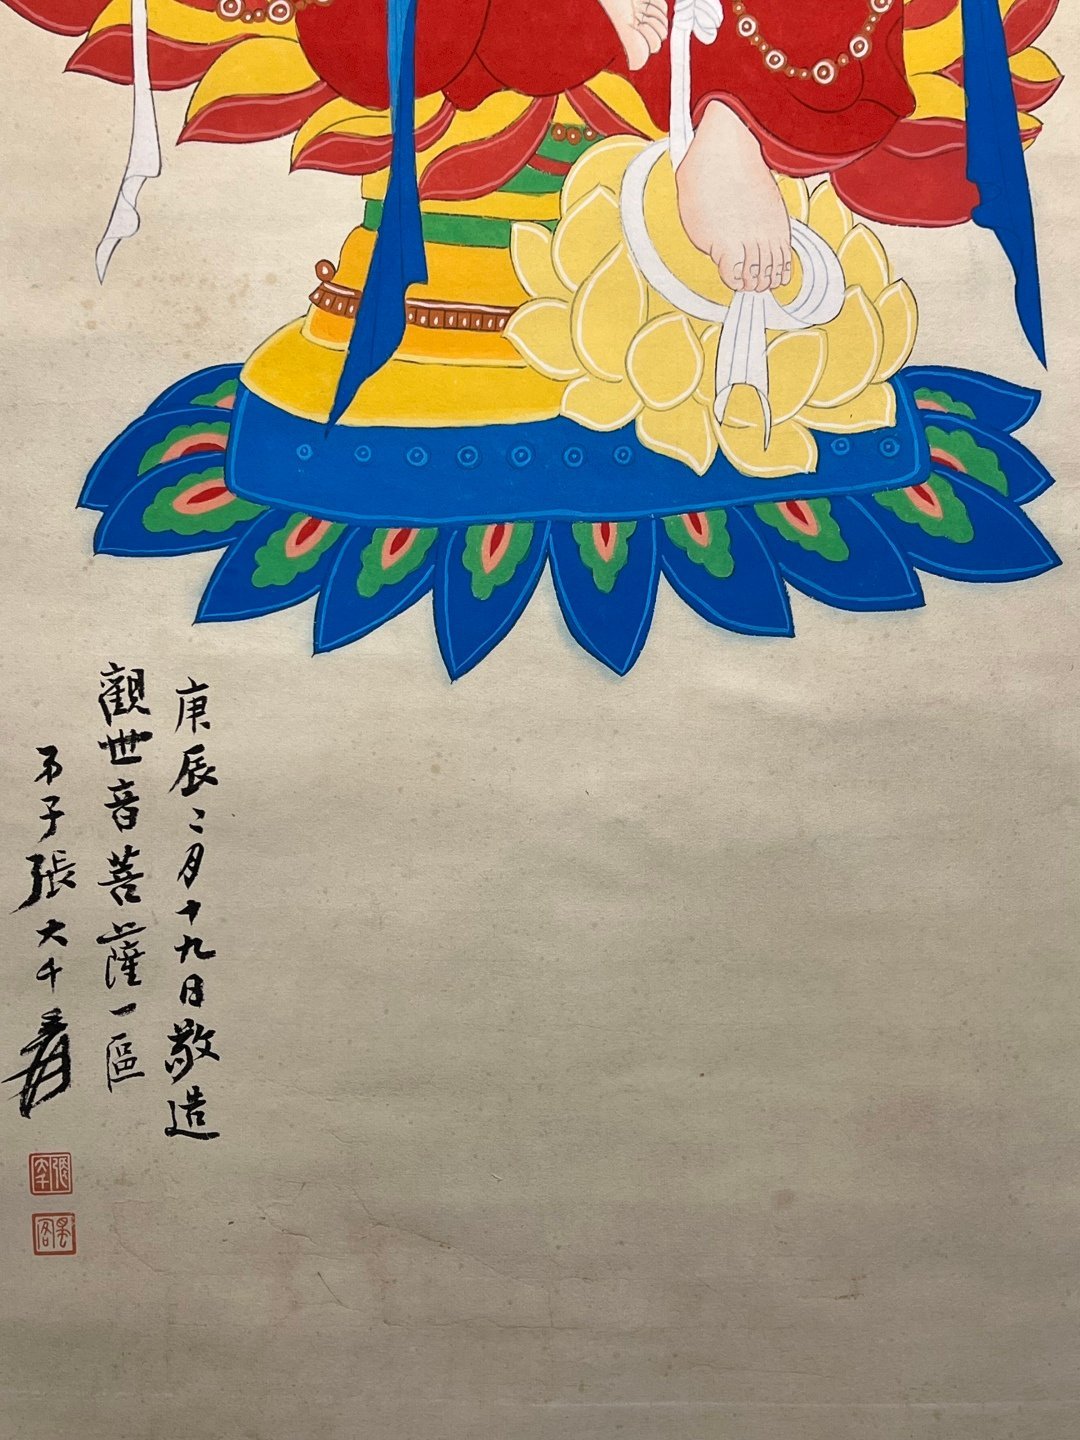 庚辰二月十九日敬造
觀世音菩薩一區
弟子張大千爰
張大千